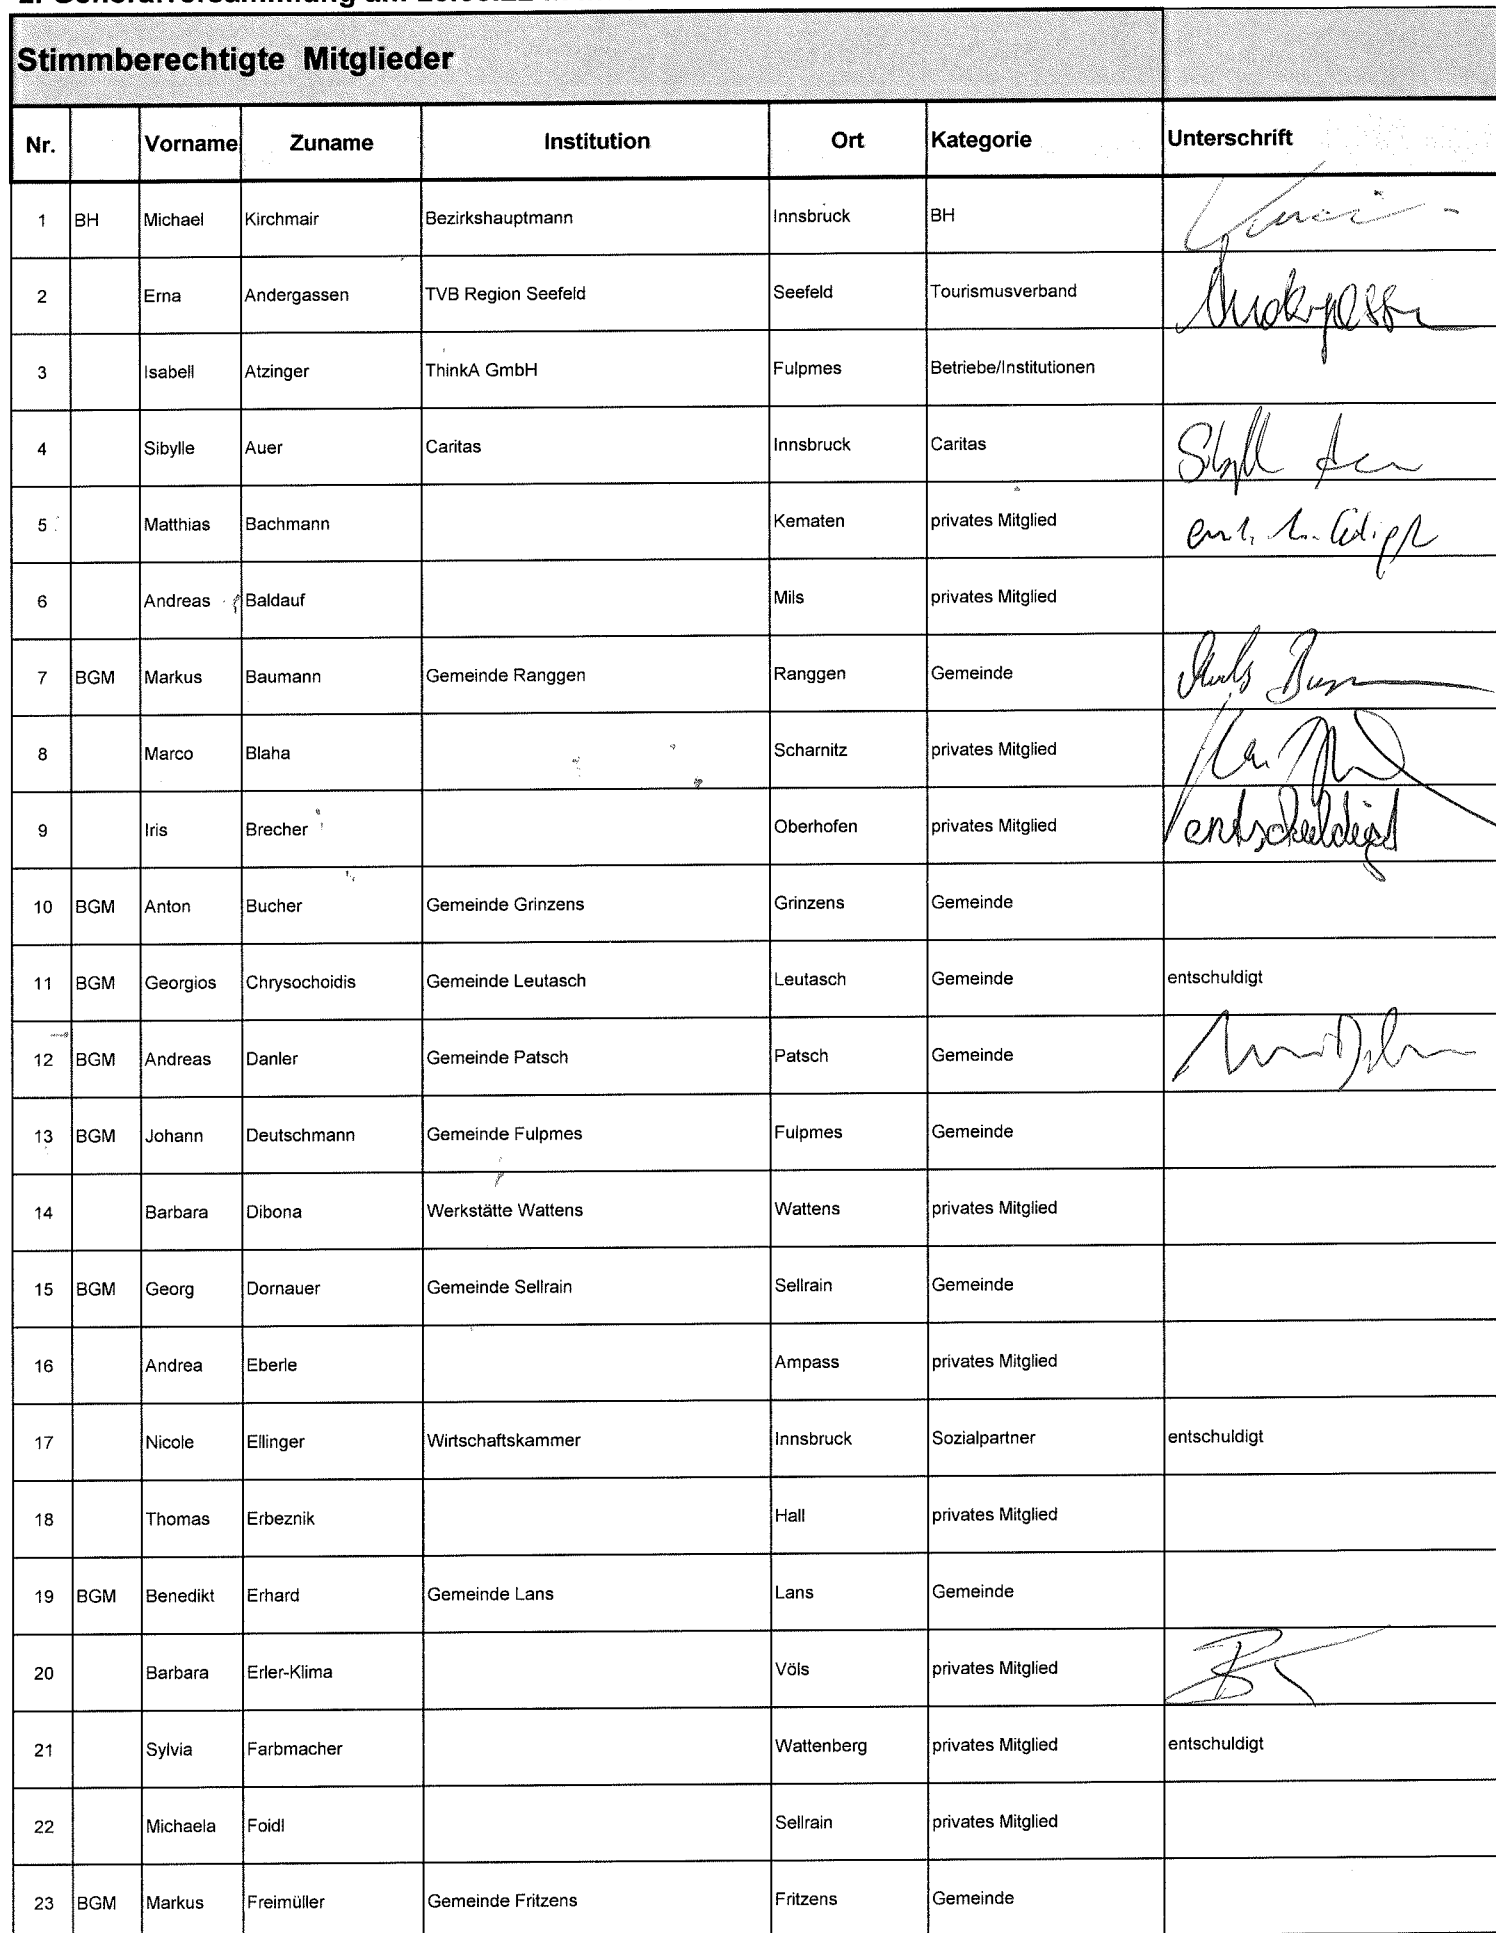 Stimmberechtigte Mitglieder
Nr. Vorname Zuname Institution Ort Kategorie Unterschrift
1 BH Michael Kirchmair Bezirkshauptmann Innsbruck BH
2 Erna Andergassen TVB Region Seefeld Seefeld Tourismusverband
3 Isabell Atzinger ThinkA GmbH Fulpmes Betriebe/Institutionen
4 Sibylle Auer Caritas Innsbruck Caritas
5 Matthias Bachmann Kematen privates Mitglied
6 Andreas Baldauf Mils privates Mitglied
7 BGM Markus Baumann Gemeinde Ranggen Ranggen Gemeinde
8 Marco Blaha Scharnitz privates Mitglied
9 Iris Brecher Oberhofen privates Mitglied entschuldigt
10 BGM Anton Bucher Gemeinde Grinzens Grinzens Gemeinde
11 BGM Georgios Chrysochoidis Gemeinde Leutasch Leutasch Gemeinde entschuldigt
12 BGM Andreas Danler Gemeinde Patsch Patsch Gemeinde
13 BGM Johann Deutschmann Gemeinde Fulpmes Fulpmes Gemeinde
14 Barbara Dibona Werkstätte Wattens Wattens privates Mitglied
15 BGM Georg Dornauer Gemeinde Sellrain Sellrain Gemeinde
16 Andrea Eberle Ampass privates Mitglied
17 Nicole Ellinger Wirtschaftskammer Innsbruck Sozialpartner entschuldigt
18 Thomas Erbeznik Hall privates Mitglied
19 BGM Benedikt Erhard Gemeinde Lans Lans Gemeinde
20 Barbara Erler-Klima Völs privates Mitglied
21 Sylvia Farbmacher Wattenberg privates Mitglied entschuldigt
22 Michaela Foidl Sellrain privates Mitglied
23 BGM Markus Freimüller Gemeinde Fritzens Fritzens Gemeinde